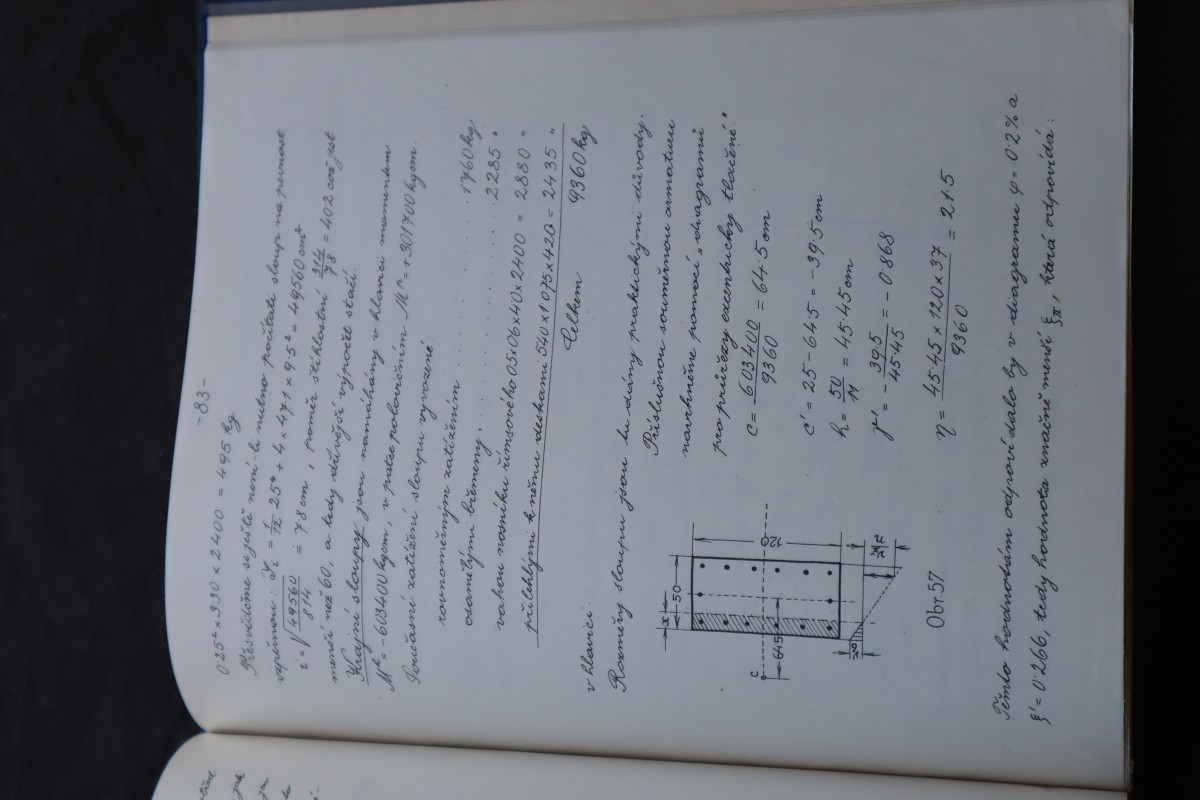 -83-
0·25² x 3·30 x 2400 = 495 kg
Přesvědčme se ještě není-li nutno počítati sloup na pevnost
vzpěrnou: J_i = 1/12 25⁴ + 4 x 4·71 x 9·5² = 49560 cm²
i = √(49560/814) = 7·8 cm, poměr štíhlostní 314/7·8 = 40·2 což jest
menší než 60, a tedy dřívější výpočet stačí.
Krajní sloupy jsou namáhány v hlavici momentem
M = -603400 kgcm, v patce polovičním M = +301700 kgcm.
Současné zatížení sloupu vyvozené:
rovnoměrným zatížením . . . . . . . . . . 1760 kg
osamělými břemeny . . . . . . . . . . . 2285 "
vahou nosníku římsového 0·5 x 0·6 x 4·0 x 2400 = 2880 "
přilehlými k němu deskami 540 x 1·075 x 4·20 = 2435 "
Celkem 9360 kg
v hlavici.
Rozměry sloupu jsou tu dány praktickými důvody.
Příslušnou souměrnou armaturu
navrhněme pomocí „diagramů
pro průřezy excentricky tlačené."
c = 603400/9360 = 64·5 cm
c' = 25 - 64·5 = -39·5 cm
h = 50/1·1 = 45·45 cm
γ' = - 39·5/45·45 = - 0·868
η = 45·45 x 120 x 37/9360 = 21·5
x
50
120
c
64·5
Obr. 57.
Těmto hodnotám odpovídalo by v diagramu φ = 0·2% a
ξ' = 0·266, tedy hodnota značně menší ξ_II, která odpovídá: